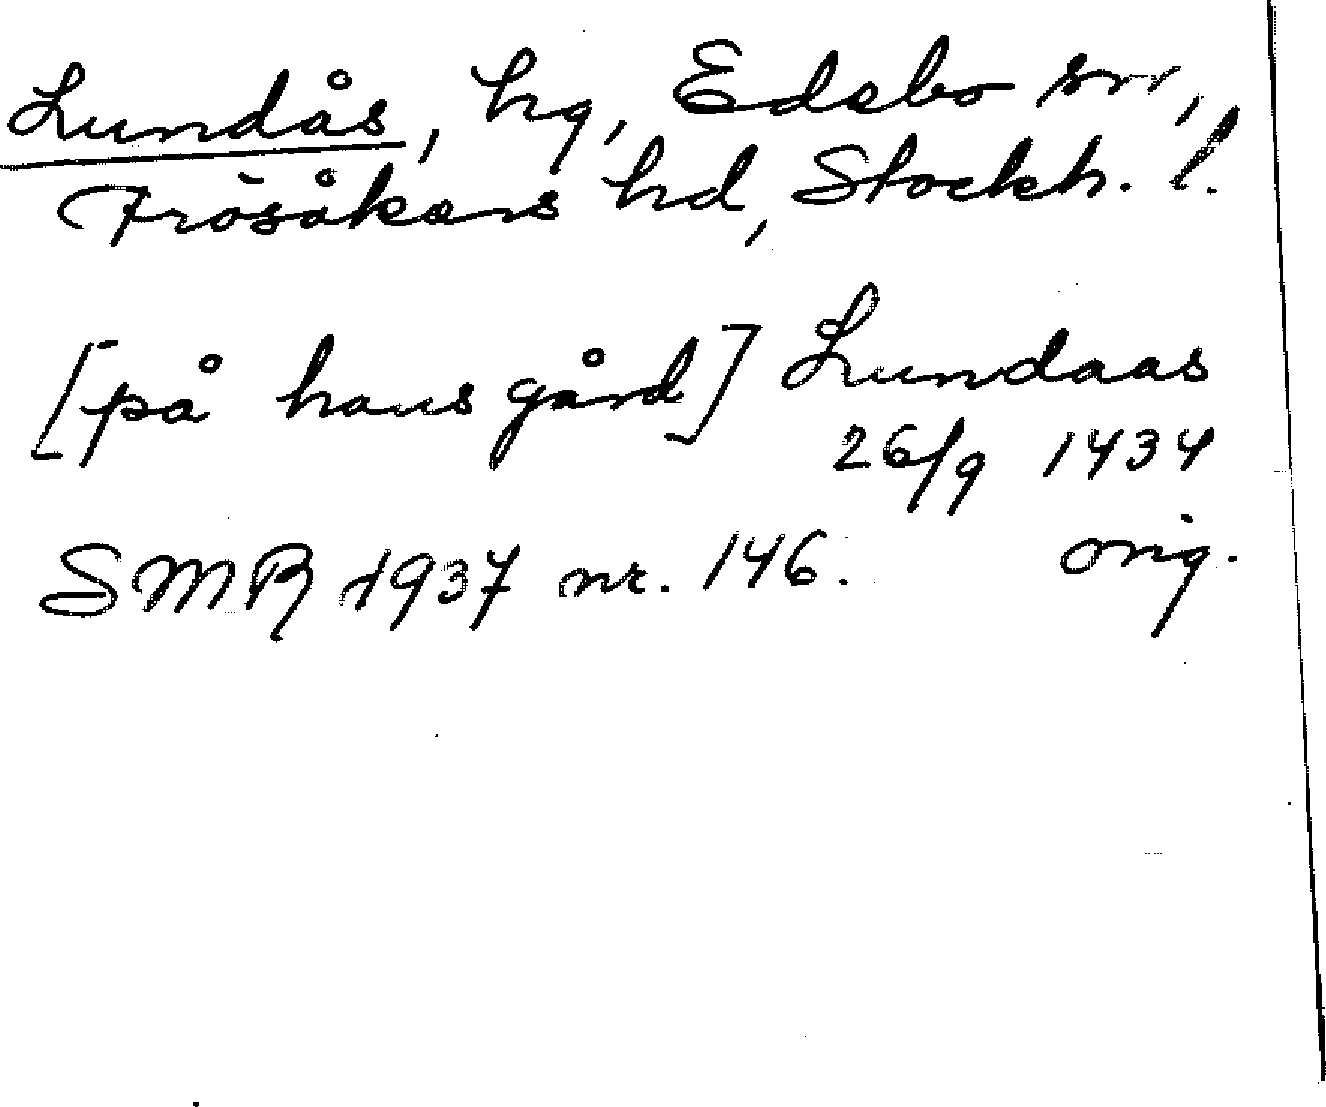 Lundås, hg, Edebo sn,
Frösåkers hd, Stockh. l.
[på hans gård] Lundaas
26/9 1434
SMR 1937 nr. 146. orig.